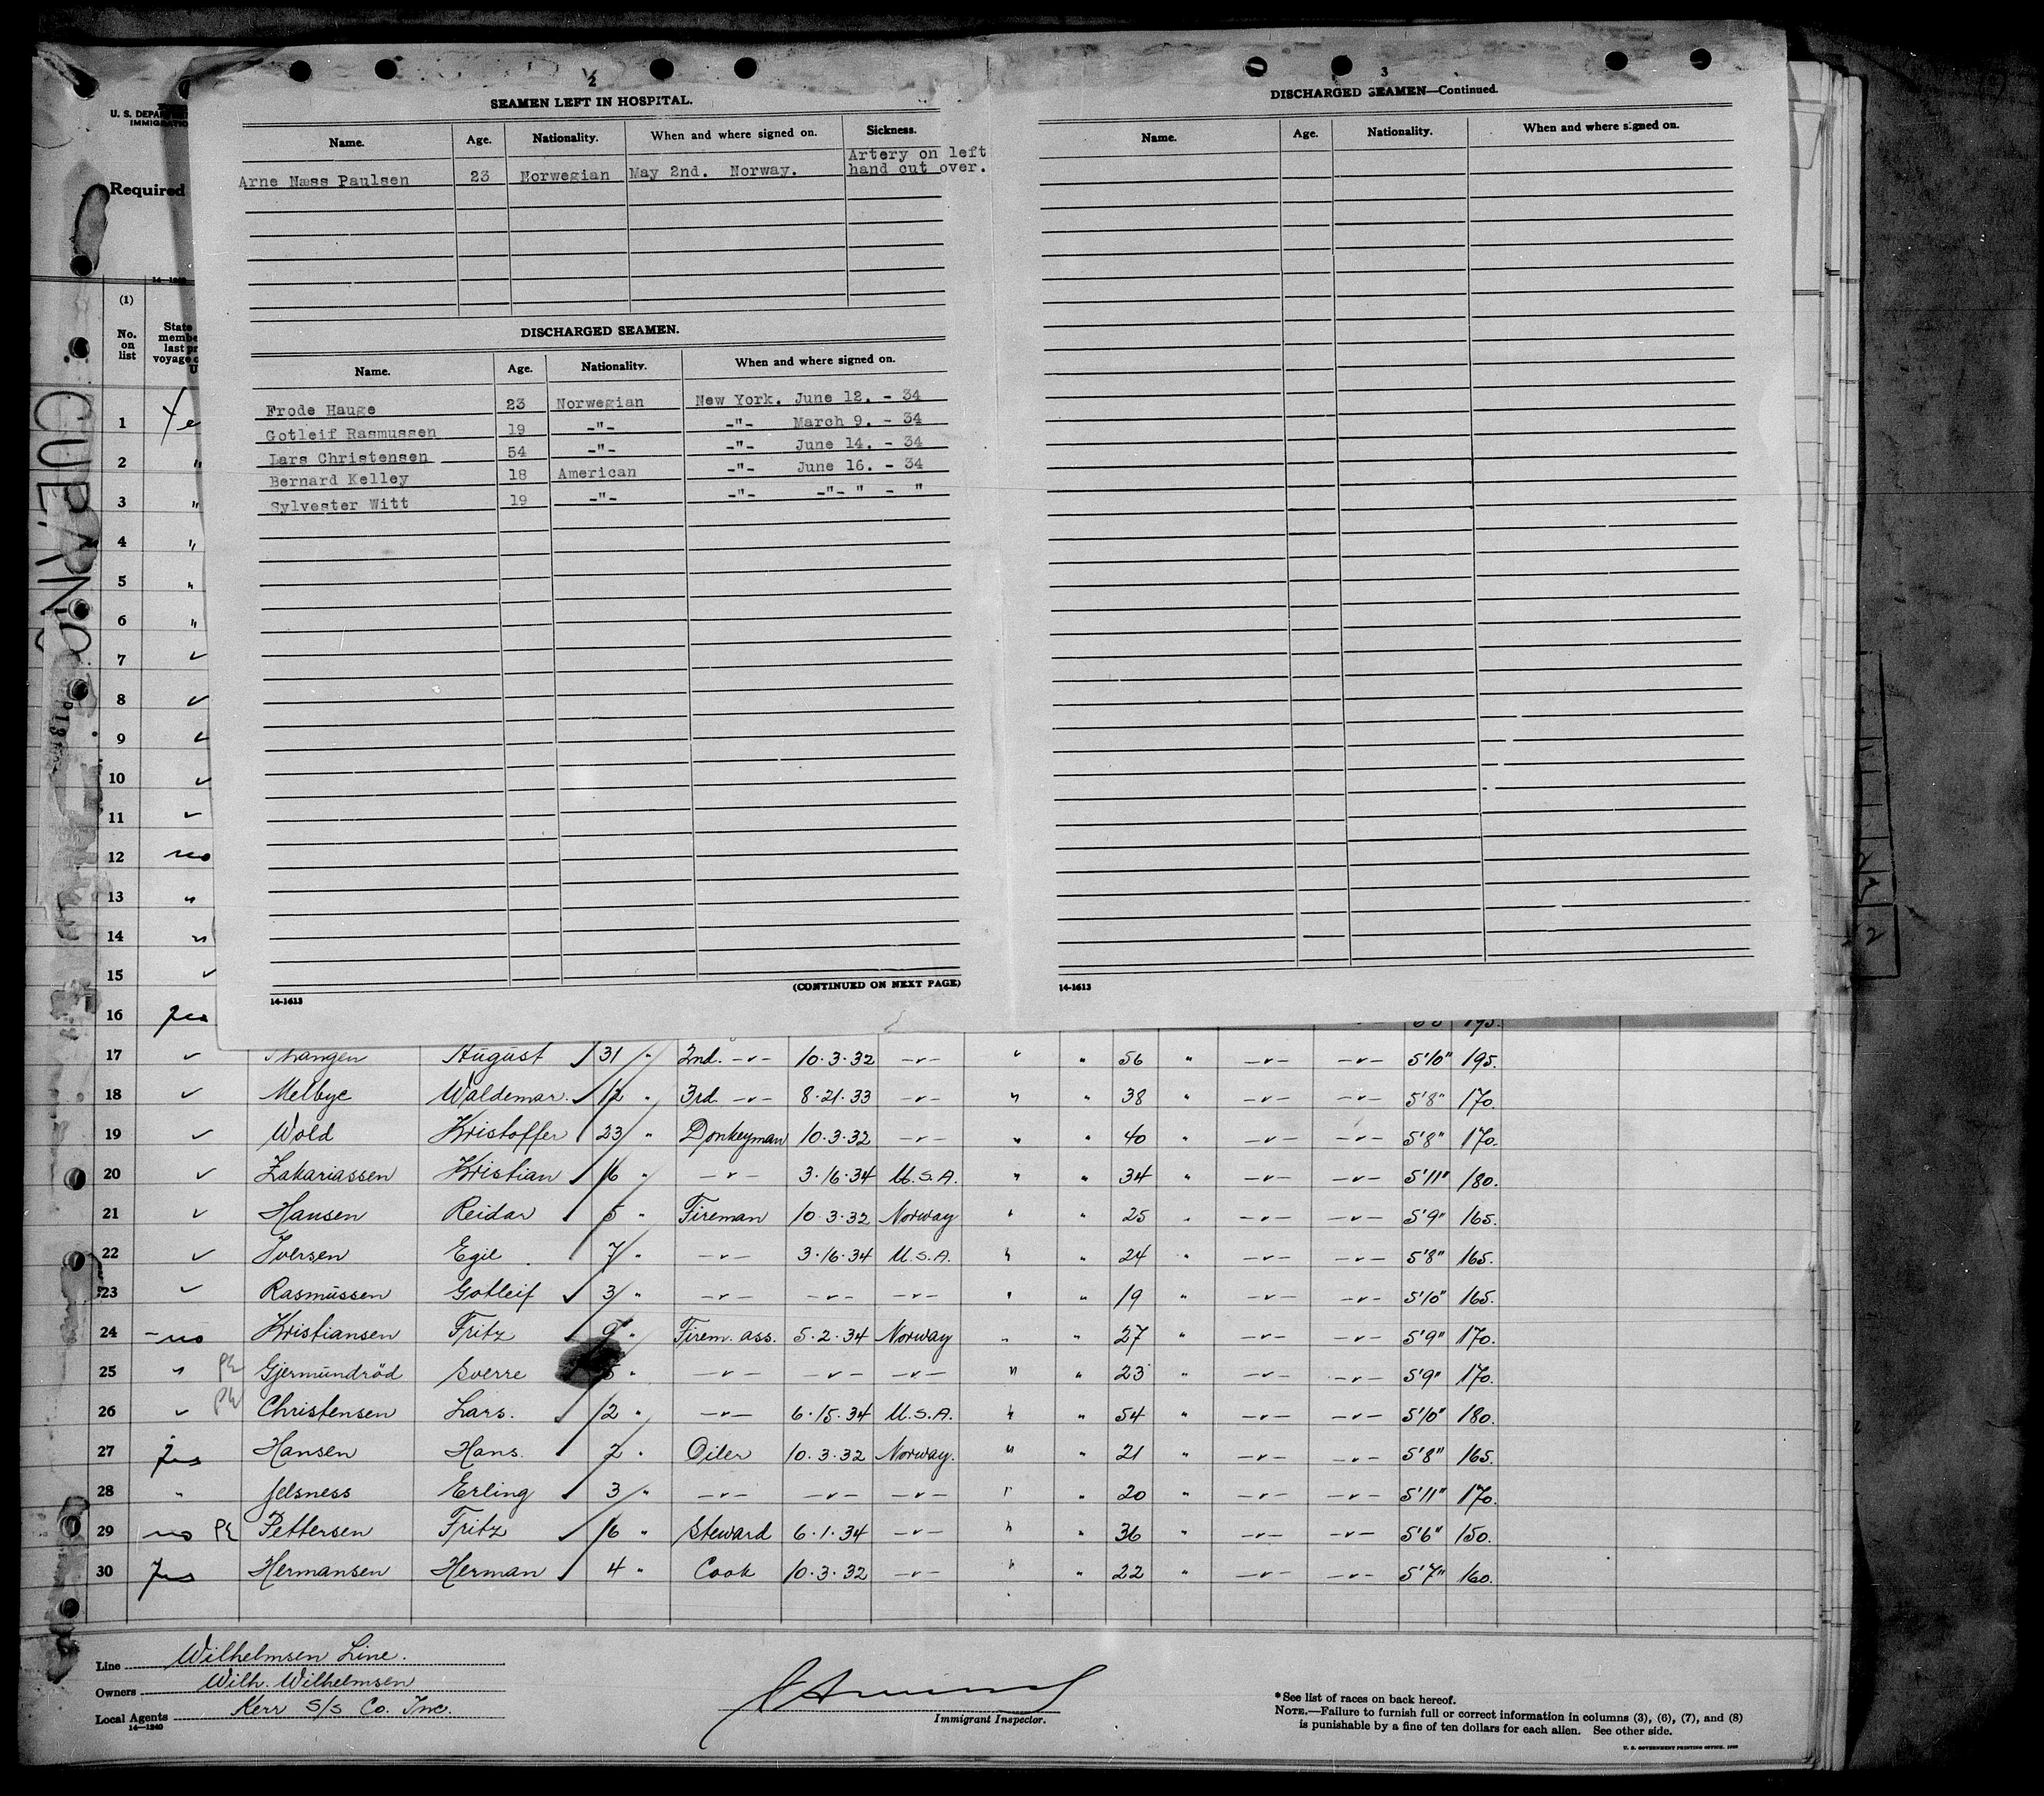 2
SEAMEN LEFT IN HOSPITAL.
Name. Age. Nationality. When and where signed on. Sickness.
Arne Næss Paulsen 23 Norwegian May 2nd. Norway. Artery on left
hand cut over.
DISCHARGED SEAMEN.
Name. Age. Nationality. When and where signed on.
Frode Hauge 23 Norwegian New York. June 12. - 34
Gotleif Rasmussen 19 -"- -"- March 9. - 34
Lars Christensen 54 -"- -"- June 14. - 34
Bernard Kelley 18 American -"- June 16. - 34
Sylvester Witt 19 -"- -"- -"- " - "
(CONTINUED ON NEXT PAGE)
14-1613
3
DISCHARGED SEAMEN—Continued.
Name. Age. Nationality. When and where signed on.
14-1613
U. S. DEPAR
IMMIGRATIO
Required
14—1240
(1)
No.
on
list
State
membe
last pr
voyage
U
1 Ye
2 "
3 "
4 "
5 "
6 "
7 ✓
8 ✓
9 ✓
10 ✓
11 ✓
12 no
13 "
14 "
15 ✓
16 yes 195.
17 ✓ August 31 " 2nd. -"- 10.3.32 -"- " " 56 " -"- -"- 5'10" 195.
18 ✓ Melbye Waldemar. 12 " 3rd -"- 8.21.33 -"- " " 38 " -"- -"- 5'8" 170.
19 ✓ Wold Kristoffer 23 " Donkeyman 10.3.32 -"- " " 40 " -"- -"- 5'8" 170.
20 ✓ Zakariassen Kristian 16 " -"- 3.16.34 U.S.A. " " 34 " -"- -"- 5'11" 180.
21 ✓ Hansen Reidar 5 " Fireman 10.3.32 Norway " " 25 " -"- -"- 5'9" 165.
22 ✓ Iversen Egil 7 " -"- 3.16.34 U.S.A. " " 24 " -"- -"- 5'8" 165.
23 ✓ Rasmussen Gotleif 3 " -"- -"- -"- " " 19 " -"- -"- 5'10" 165.
24 -no Kristiansen Fritz 9 " Firem. ass. 5.2.34 Norway " " 27 " -"- -"- 5'9" 170.
25 " Gjermundröd Sverre 5 " -"- -"- -"- " " 23 " -"- -"- 5'9" 170.
26 ✓ Christensen Lars. 12 " -"- 6.15.34 U.S.A. " " 54 " -"- -"- 5'10" 180.
27 yes Hansen Hans. 2 " Oiler 10.3.32 Norway. " " 21 " -"- -"- 5'8" 165.
28 " Jelsness Erling 3 " -"- -"- -"- " " 20 " -"- -"- 5'11" 170.
29 no Pettersen Fritz 16 " Steward 6.1.34 -"- " " 36 " -"- -"- 5'6" 150.
30 Yes Hermansen Herman 4 " Cook 10.3.32 -"- " " 22 " -"- -"- 5'7" 160.
Line Wilhelmsen Line.
Owners Wilh. Wilhelmsen
Local Agents Kerr S/S Co. Inc.
14—1240
Immigrant Inspector.
*See list of races on back hereof.
NOTE.—Failure to furnish full or correct information in columns (3), (6), (7), and (8)
is punishable by a fine of ten dollars for each alien. See other side.
U. S. GOVERNMENT PRINTING OFFICE